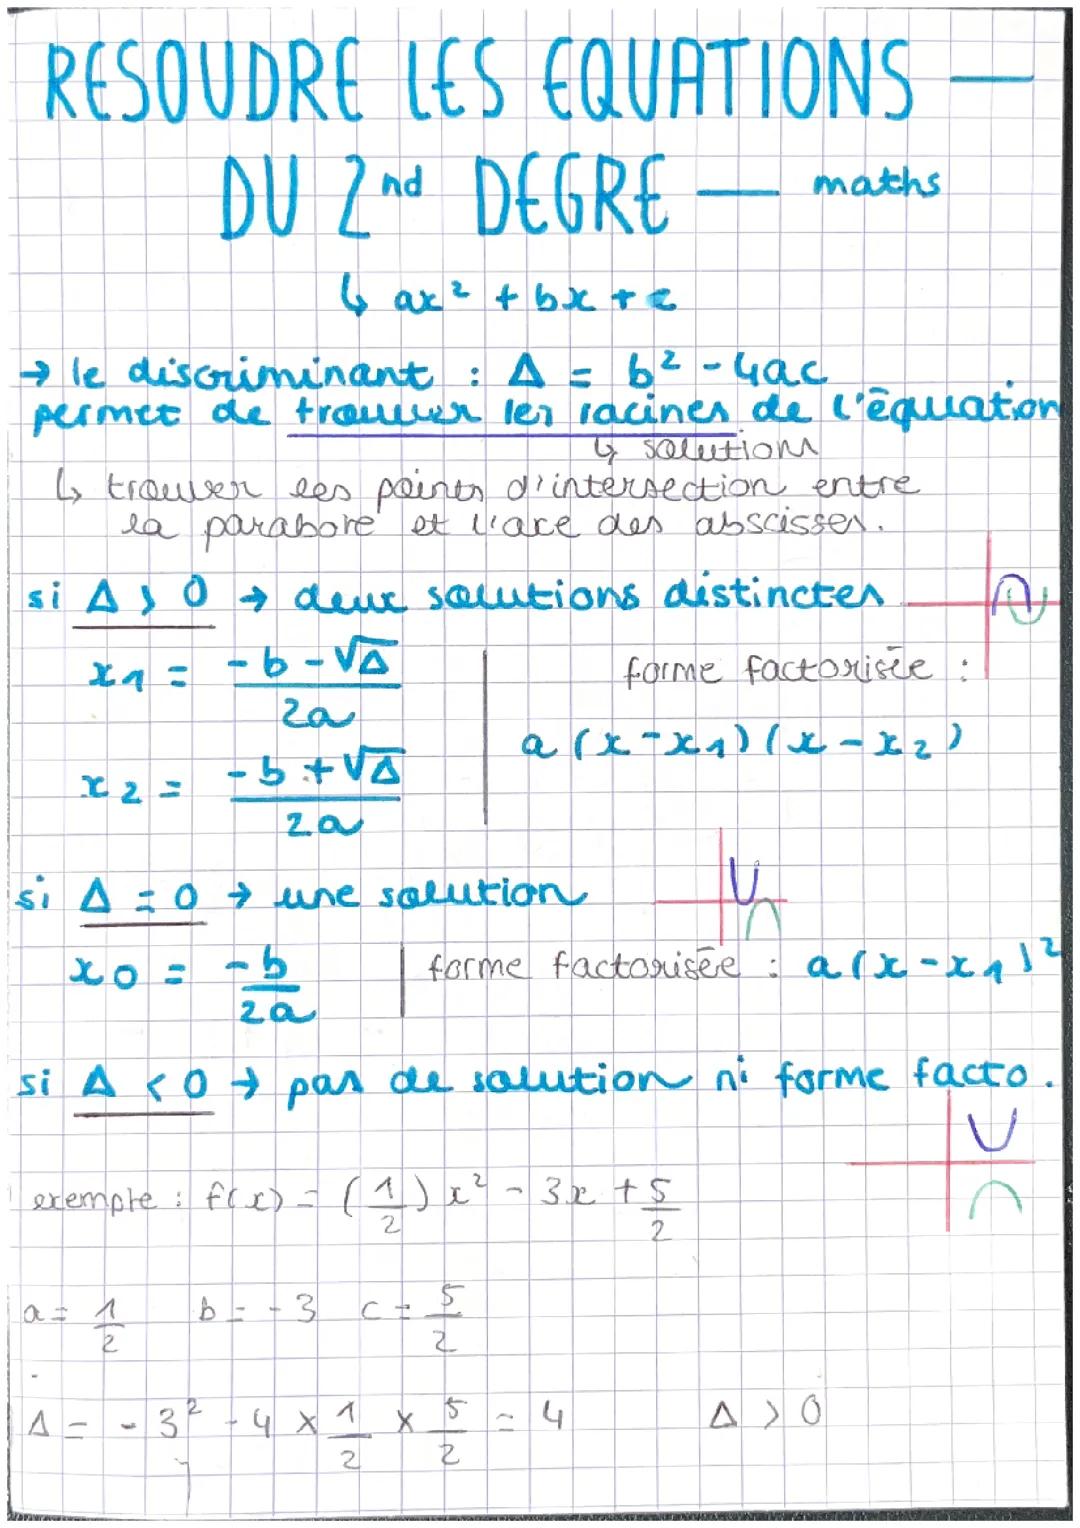 RESOUDRE LES EQUATIONS —
DU 2nd DEGRE — maths
↳ ax² + bx + c
→ le discriminant : Δ = b² - 4ac
permet de trouver les racines de l'équation
↳ solutions
↳ trouver les points d'intersection entre
la parabole et l'axe des abscisses.
si Δ > 0 → deux solutions distinctes
x1 = (-b - √Δ) / 2a
forme factorisée :
a (x - x1) (x - x2)
x2 = (-b + √Δ) / 2a
si Δ = 0 → une solution
x0 = -b / 2a | forme factorisée : a (x - x1)²
si Δ < 0 → pas de solution ni forme facto.
exemple : f(x) = (1/2) x² - 3x + 5/2
a = 1/2 b = -3 c = 5/2
Δ = -3² - 4 × 1/2 × 5/2 = 4 Δ > 0